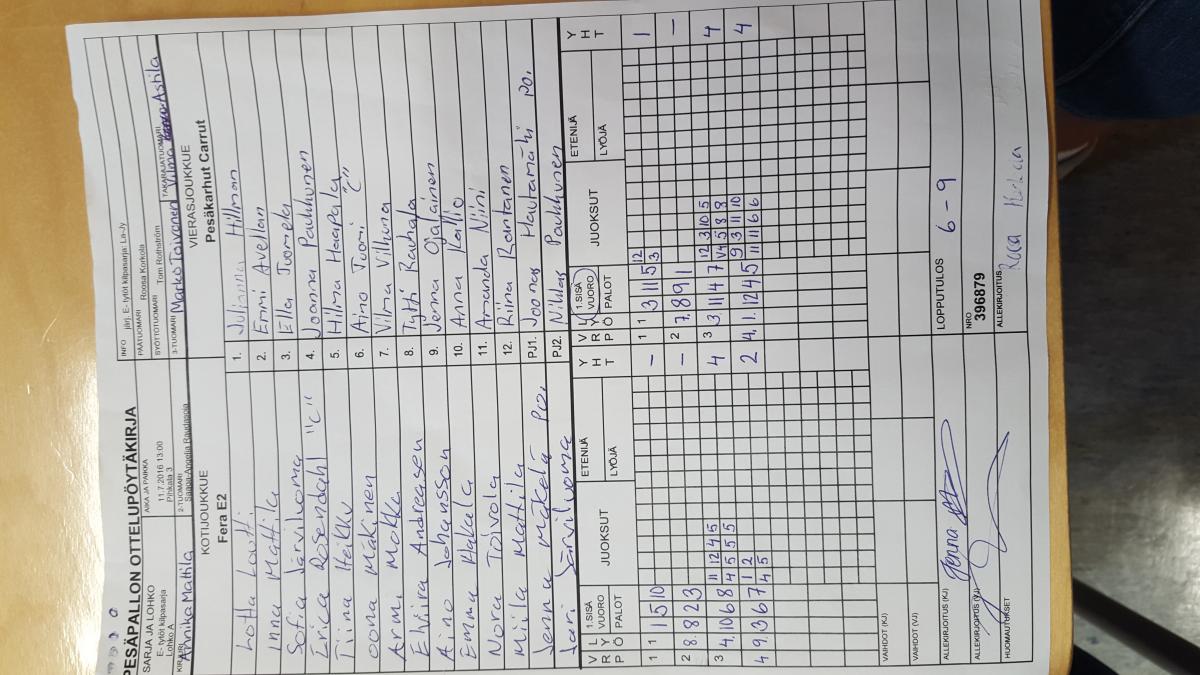 PESÄPALLON OTTELUPÖYTÄKIRJA
SARJA JA LOHKO
E- tytöt kilpasarja
Lohko A
AIKA JA PAIKKA
11.7.2016 13:00
Pihkala 3
INFO järj. E- tytöt kilpasarja: La-Jy
PÄÄTUOMARI Roosa Korkola
SYÖTTÖTUOMARI Tom Rothström
KIRJURI Annika Mattila
2-TUOMARI Saana-Angelia Raudasoja
3-TUOMARI Marko Toivanen
TAKARAJATUOMARI Vilma Astila
KOTIJOUKKUE
Fera E2
VIERASJOUKKUE
Pesäkarhut Carrut
Lotta Loutti 1. Julianna Hillman
Inna Mattila 2. Emmi Avellan
Sofia Järvilvoma 3. Ella Tuomela
Erica Rosendahl "C" 4. Joanna Paukkunen
Tiina Heikku 5. Hilma Haapala
Oona Mäkinen 6. Aino Tuomi "C"
Armi Mokka 7. Vilma Villuna
Elviira Andreasen 8. Tytti Rauhala
Aino Johansson 9. Jenna Ojalainen
Emma Hakala 10. Anna Kallio
Nora Toivola 11. Amanda Niini
Miila Mattila 12. Riina Rantanen
Jenna Mäkelä PO. PJ1. Joonas Hautamäki PO.
Jari Järvilvoma PJ2. Niklas Paukkunen
V R P L Y Ö 1.SISÄ VUORO PALOT JUOKSUT ETENIJÄ LYÖJÄ Y H T V R P L Y Ö 1.SISÄ VUORO PALOT JUOKSUT ETENIJÄ LYÖJÄ Y H T
1 1 1 5 10 – 1 1 3 11 5 12 3 1
2 8. 8 2 3 – 2 7. 8 9 1 –
3 4. 10 6 8 11 12 4 5 4 5 5 5 4 3 3. 11 4 7 12 3 10 5 V4 5 8 8 4
4 9. 3 6 7 1 2 4 5 2 4. 1. 12 4 5 9 3 11 10 11 11 6 6 4
VAIHDOT (KJ)
VAIHDOT (VJ)
ALLEKIRJOITUS (KJ) Jenna
LOPPUTULOS 6 - 9
ALLEKIRJOITUS (VJ)
NRO 396879
HUOMAUTUKSET
ALLEKIRJOITUS